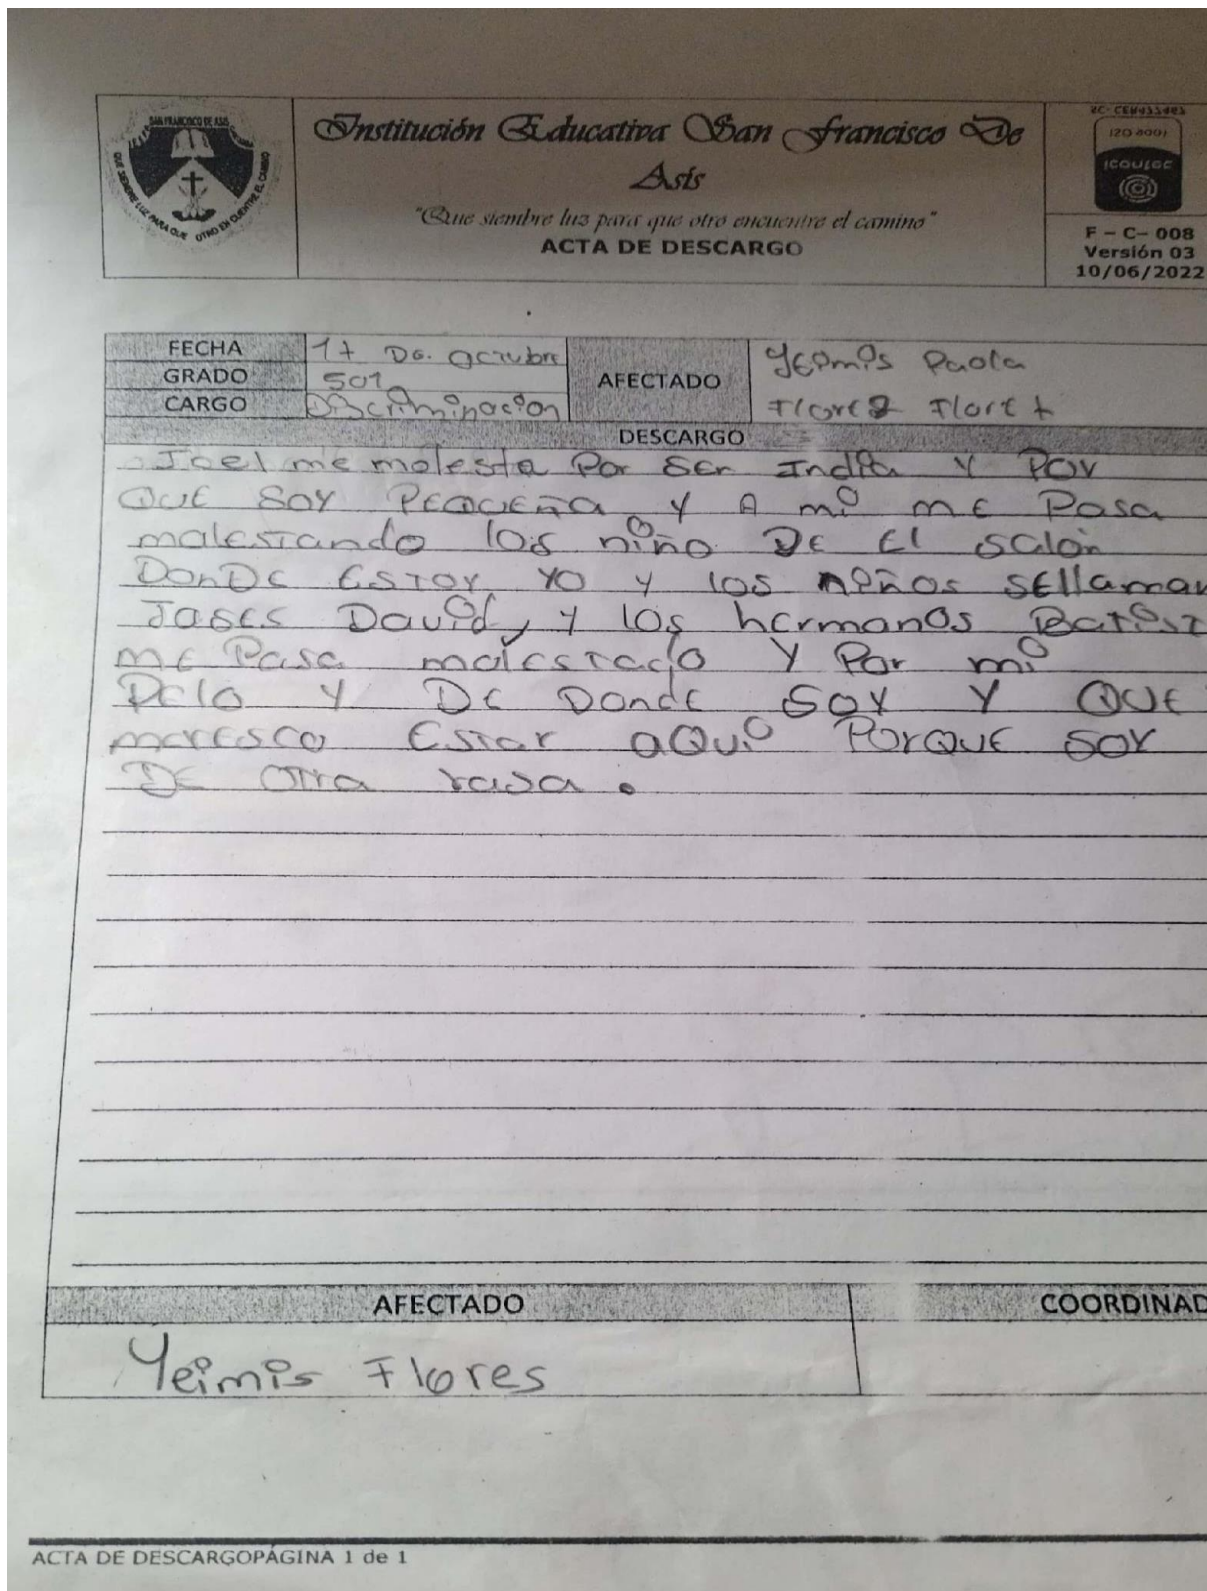 SAN FRANCISCO DE ASIS
QUE SIEMBRE LUZ PARA QUE OTRO ENCUENTRE EL CAMINO
Institución Educativa San Francisco De
Asís
"Que siembre luz para que otro encuentre el camino"
ACTA DE DESCARGO
F – C– 008
Versión 03
10/06/2022
FECHA 17 DE. octubre
GRADO 501
CARGO Discriminacion
AFECTADO Yeimis Paola
Florez Florez
DESCARGO
Joel me molesta Por SEr IndIa Y Por
QUE SOY PEQUEÑA Y A mi mE Pasa
malestando los niño DE El salón
DonDE ESTOY YO Y los niños sEllaman
David, Y los hermanos
mE Pasa malestado Y Por mi
Pelo Y DE DondE SOY Y QUE
merEsco Estar aQui PorQUE SOY
DE OTra rasa.
AFECTADO
COORDINAD
Yeimis Flores
ACTA DE DESCARGOPÁGINA 1 de 1